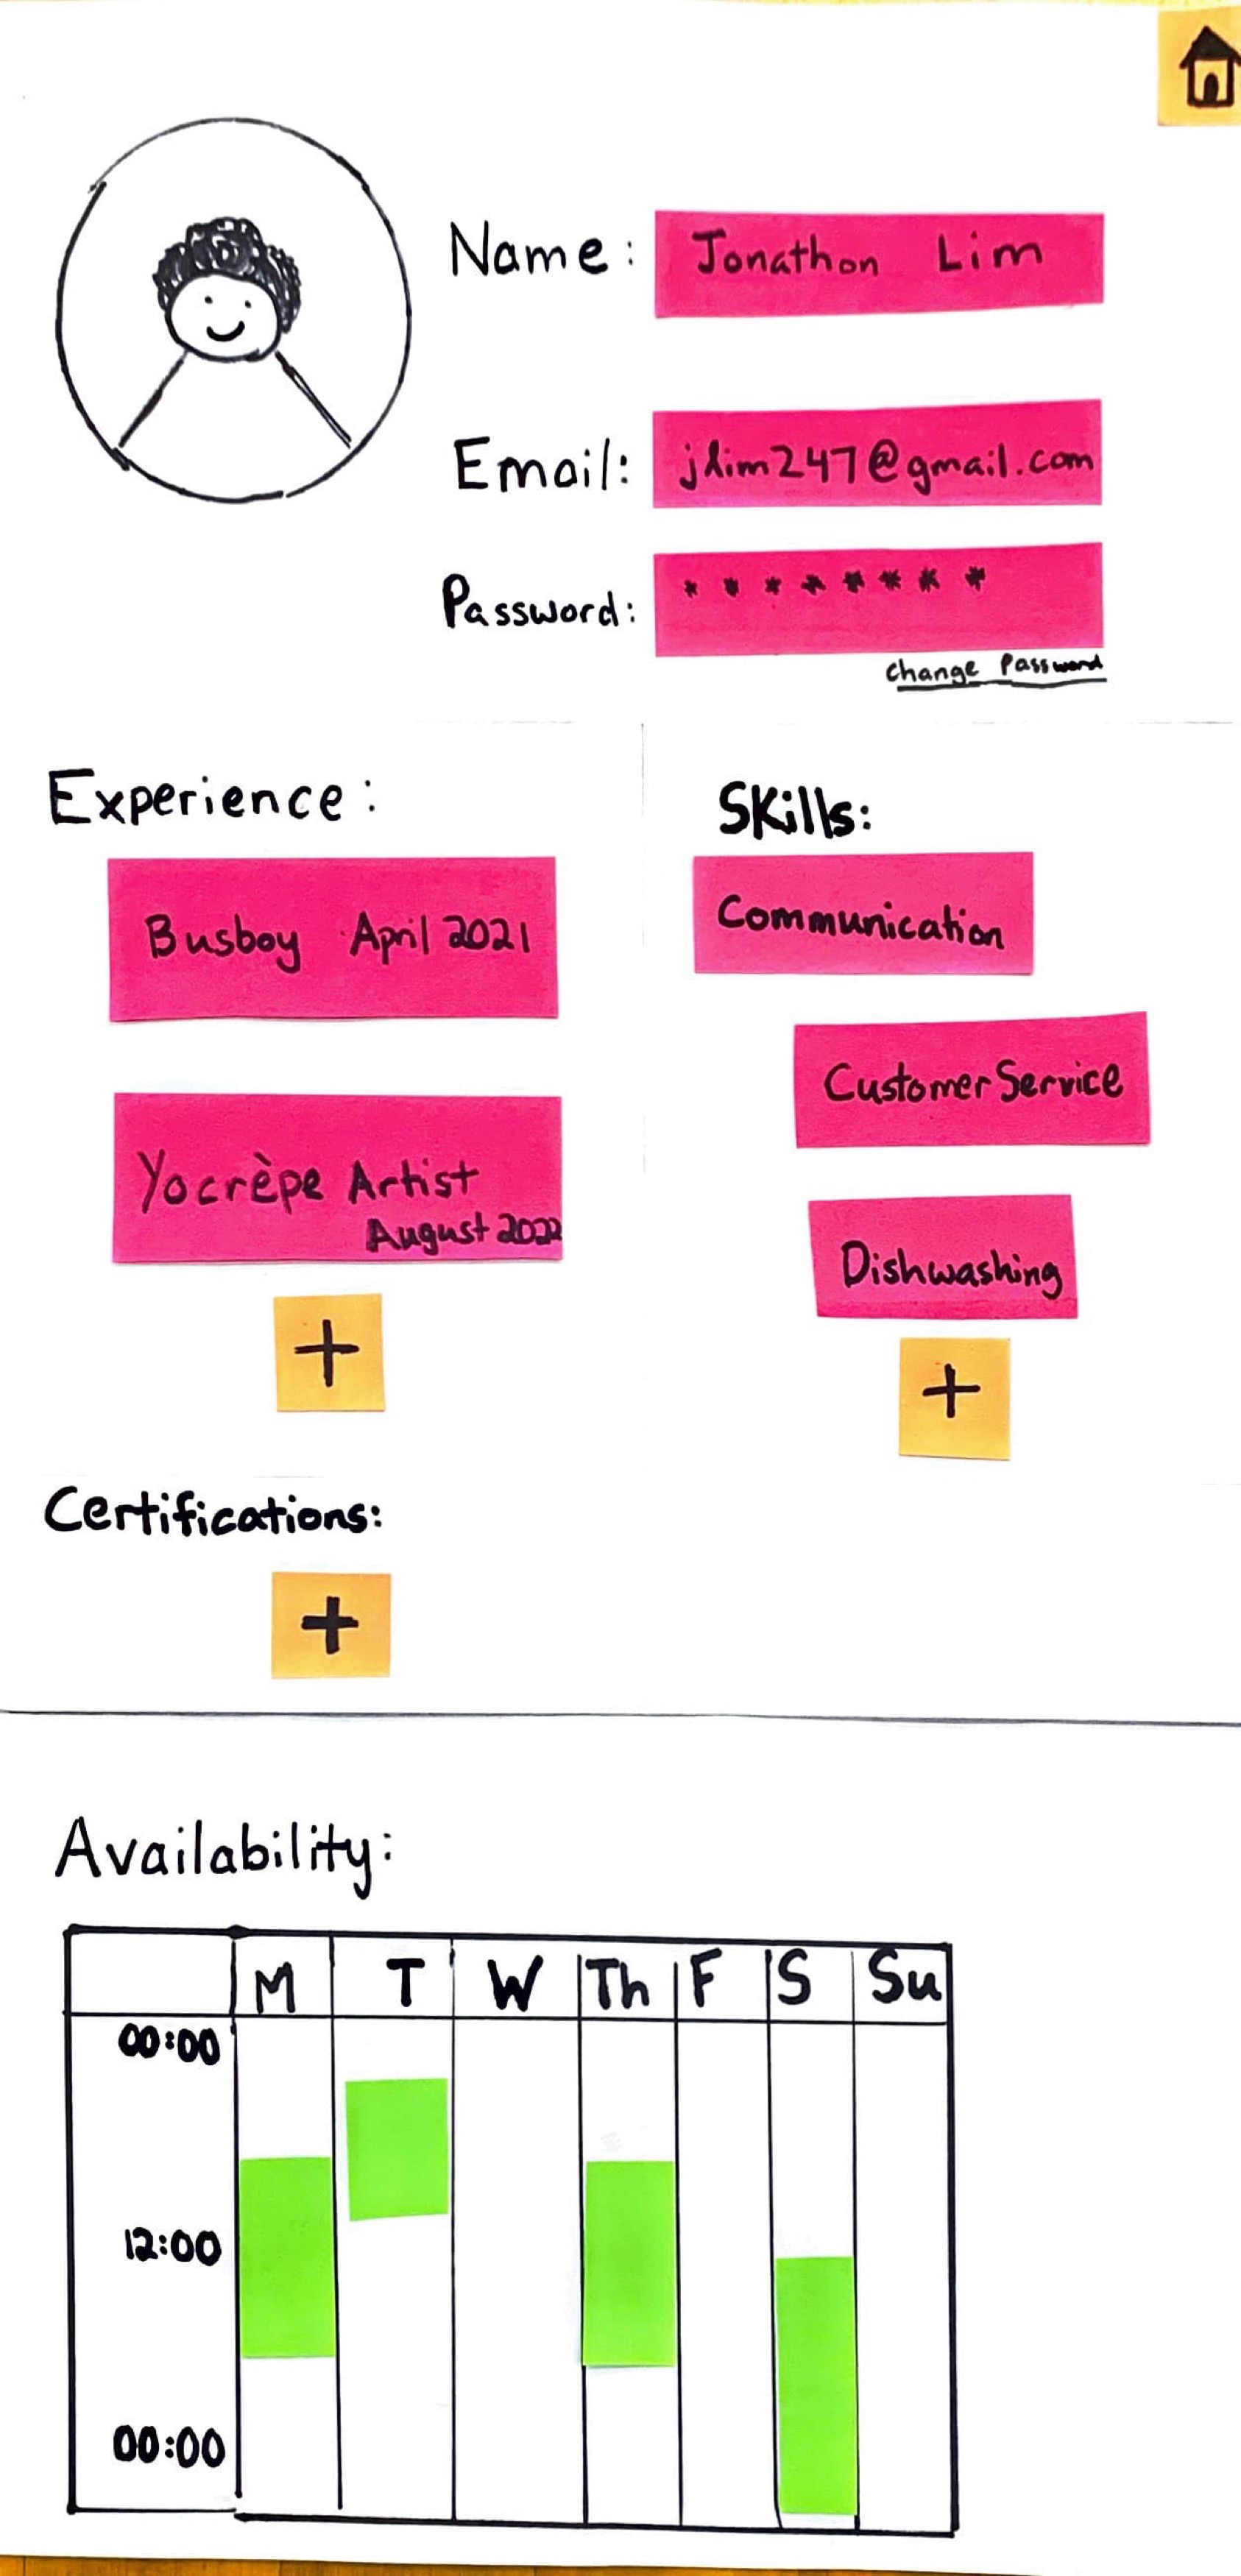 Name: Jonathon Lim
Email: jlim247@gmail.com
Password: * * * * * * * *
change Password
Experience:
Busboy April 2021
Yocrèpe Artist
August 2022
+
Skills:
Communication
Customer Service
Dishwashing
+
Certifications:
+
Availability:
M T W Th F S Su
00:00
12:00
00:00